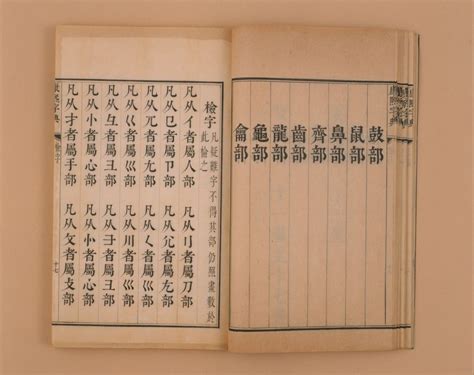 鼓部
鼠部
鼻部
齊部
齒部
龍部
龜部
龠部
檢字
凡疑難字不得其部仍照畫數於
此檢之
凡从亻者屬人部 凡从刂者屬刀部
凡从㔾者屬卩部 凡从尣者屬尢部
凡从兀者屬尢部 凡从𡿨者屬巛部
凡从巜者屬巛部 凡从川者屬巛部
凡从彑者屬彐部 凡从者屬彐部
凡从忄者屬心部 凡从㣺者屬心部
凡从扌者屬手部 凡从攵者屬攴部
康熙字典 檢字 十七